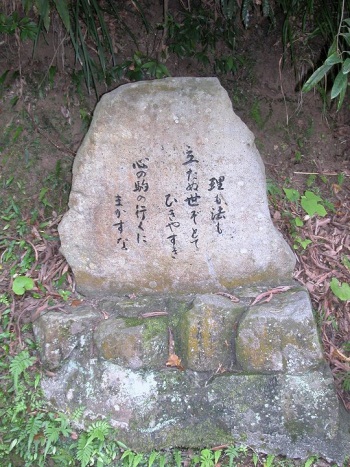 理も法も
立たぬ世ぞとて
ひきやすき
心の駒の行くに
まかすな